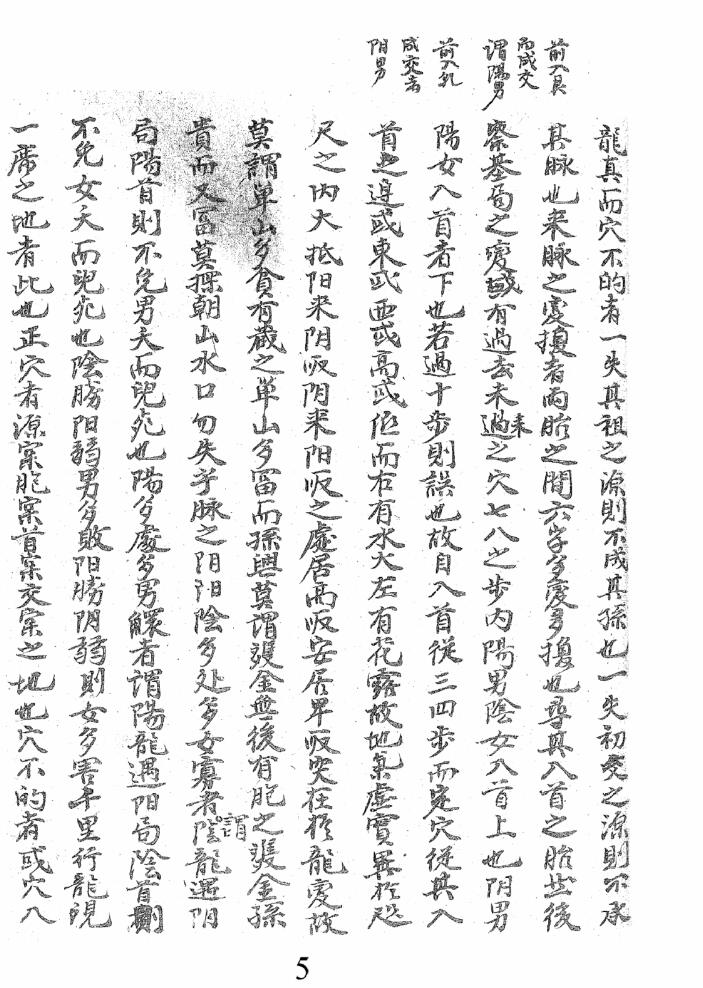 前入艮
而成交
謂陽男
前入乳
成交者
阴男
龍真而穴不的者一失其祖之源則不成其孫也一失初受之源則不承
其脉也来脉之変換者両胎之間六字多変多換也尋其入首之胎然後
察基局之変或有過去未過未来之穴七八之步内陽男陰女入首上也阴男
陽女入首者下也若過十步則誤也故自入首従三四步而定穴従其入
首之遵或東或西或高或低而右有水大左有花露故地氣虛實異於咫
尺之内大抵阳来阴収阴来阳収之處居高収安居卑収突在於龍変故
莫謂单山多貪有蔵之单山多冨而孫興莫謂雙金無後有胞之雙金孫
貴而又冨莫探朝山水口勿失乎脉之阴阳陰多处多女寡者謂陰龍遇阴
局陽首則不免男夭而兒死也陽多處多男鰥者謂陽龍遇阳局陰首則
不免女夭而兒死也陰勝阳弱男多敗阳勝阴弱則女多害千里行龍視
一席之地者此也正穴者源案胞案首案交案之地也穴不的者或穴入
5